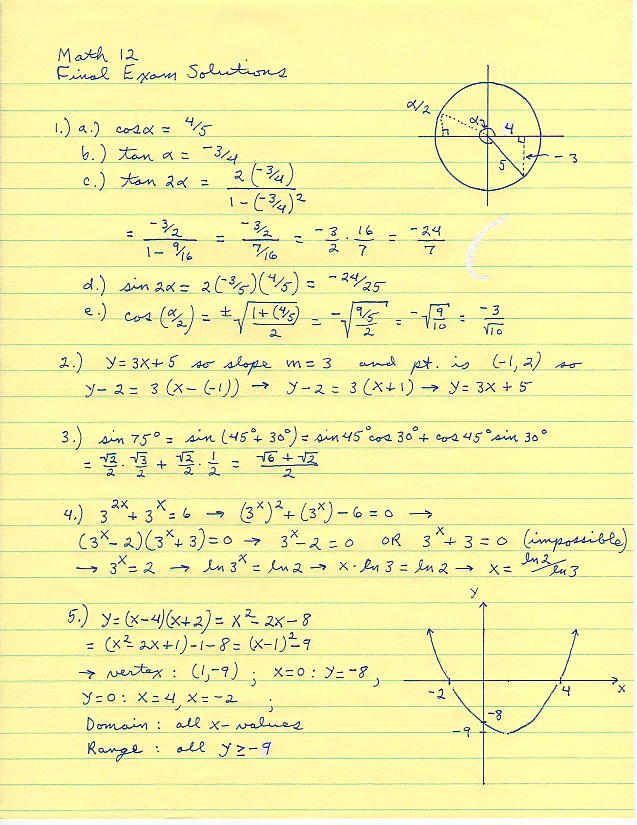 Math 12
Final Exam Solutions
1.) a.) cosα = 4/5
b.) tan α = -3/4
c.) tan 2α = 2(-3/4) / 1-(-3/4)²
= -3/2 / 1- 9/16 = -3/2 / 7/16 = -3/2 · 16/7 = -24/7
d.) sin 2α = 2(-3/5)(4/5) = -24/25
e.) cos (α/2) = ±√(1+(4/5) / 2) = -√(9/5 / 2) = -√(9/10) = -3/√10
α/2
α
4
5
-3
2.) y=3x+5 so slope m=3 and pt. is (-1,2) so
y-2 = 3(x-(-1)) → y-2 = 3(x+1) → y=3x+5
3.) sin 75° = sin (45°+30°) = sin 45° cos 30° + cos 45° sin 30°
= √2/2 · √3/2 + √2/2 · 1/2 = √6 + √2 / 2
4.) 3^2x + 3^x = 6 → (3^x)² + (3^x) - 6 = 0 →
(3^x - 2)(3^x + 3) = 0 → 3^x - 2 = 0 OR 3^x + 3 = 0 (impossible)
→ 3^x = 2 → ln 3^x = ln 2 → x · ln 3 = ln 2 → x = ln2/ln3
5.) y=(x-4)(x+2) = x² - 2x - 8
= (x² - 2x+1) -1 -8 = (x-1)² -9
→ vertex : (1,-9) ; x=0 : y=-8 ;
y=0 : x=4, x=-2 ;
Domain : all x-values
Range : all y ≥ -9
y
x
-2
4
-8
-9